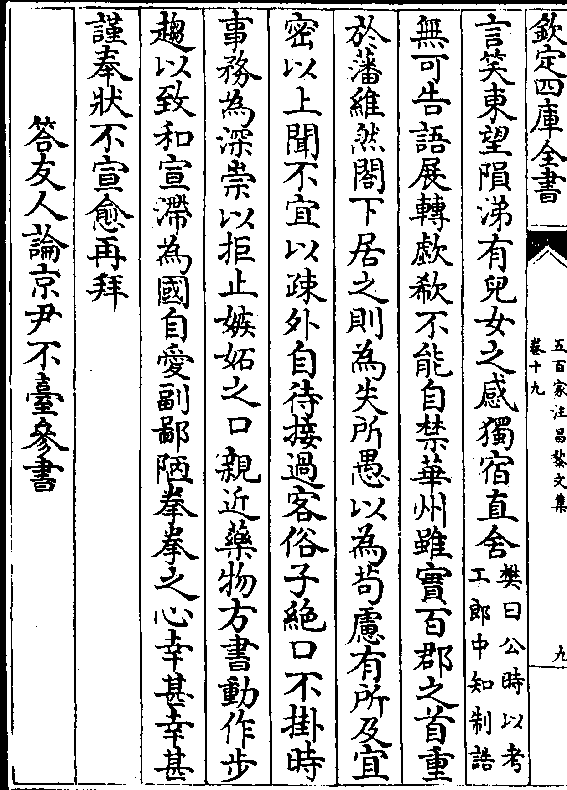 欽定四庫全書
五百家注昌黎文集
卷十九
九
言笑東望隕涕有兒女之感獨宿直舍
樊曰公時以考
工郎中知制誥
無可告語展轉歔欷不能自禁華州雖實百郡之首重
於藩維然閣下居之則為失所愚以為苟慮有所及宜
密以上聞不宜以疎外自待接過客俗子絶口不掛時
事務為深崇以拒止嫉妬之口親近藥物方書動作步
趨以致和宣滯為國自愛副鄙陋拳拳之心幸甚幸甚
謹奉狀不宣愈再拜
答友人論京尹不臺參書